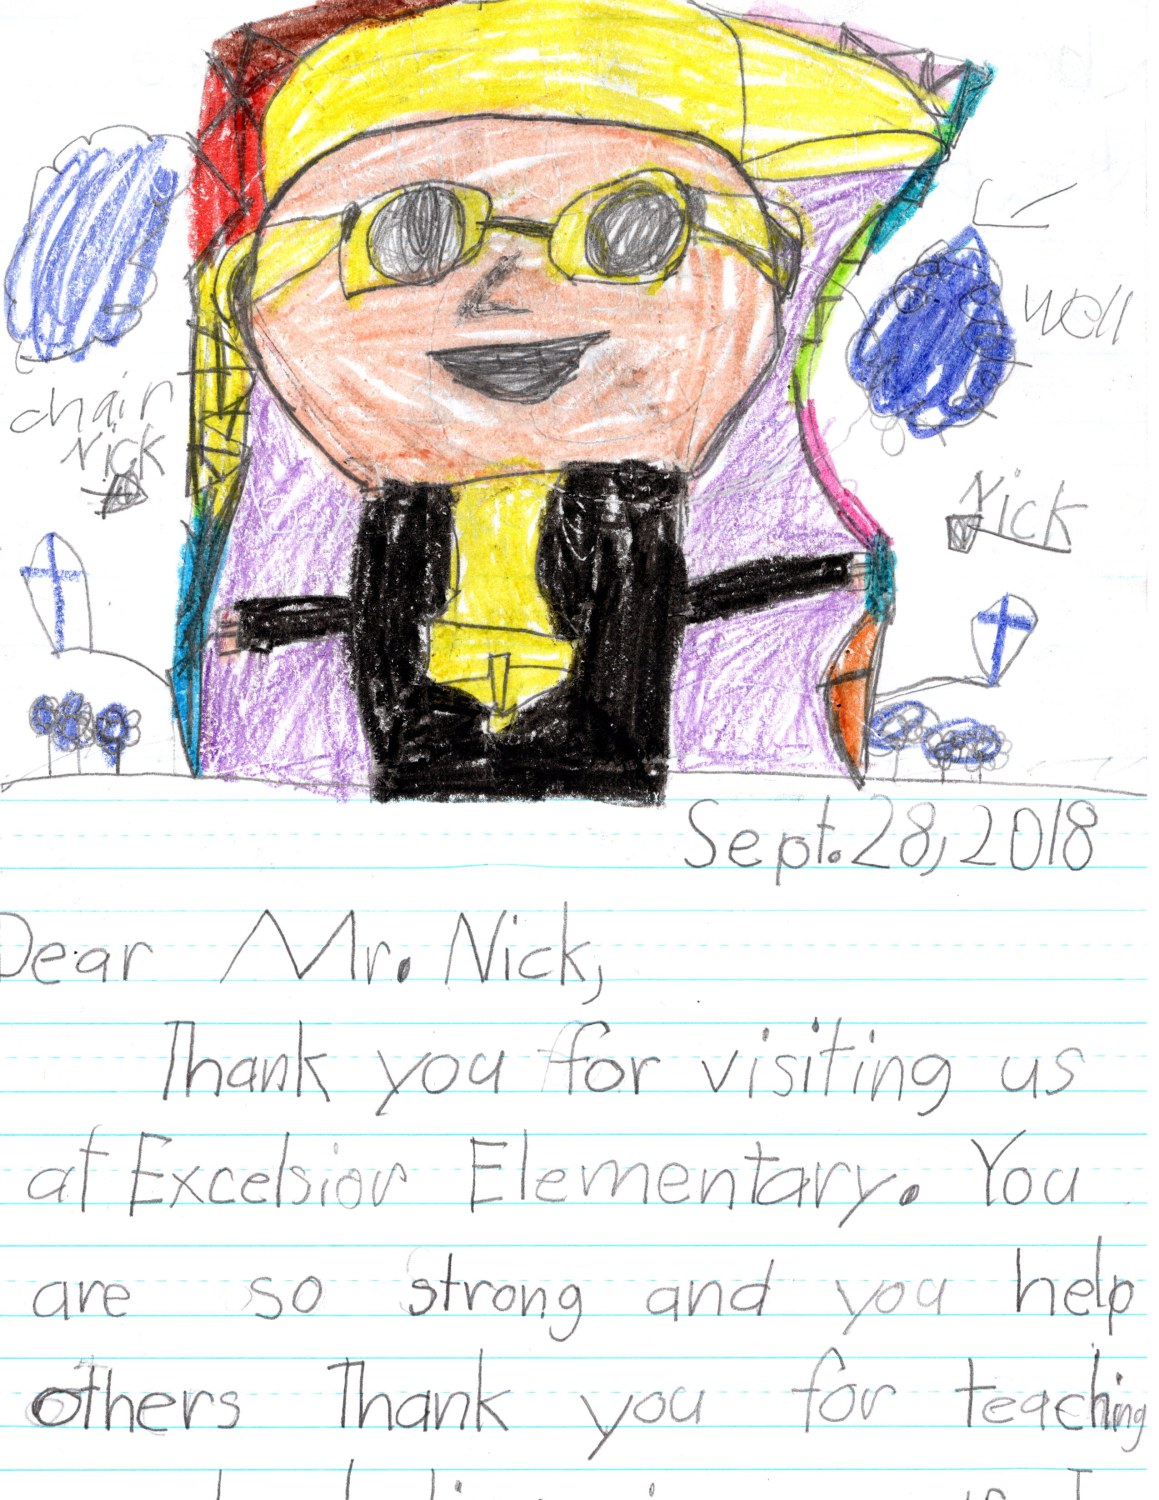 well
chair
Nick
Nick
Sept. 28, 2018
Dear Mr. Nick,
Thank you for visiting us
at Excelsior Elementary. You
are so strong and you help
others Thank you for teaching